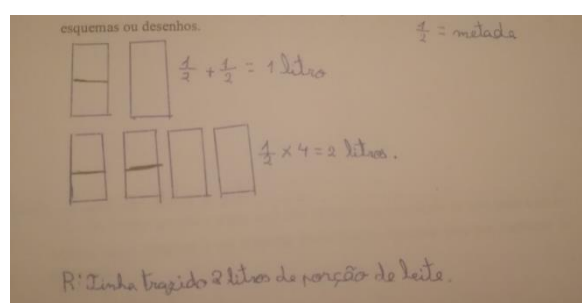 esquemas ou desenhos.
1/2 = metade
1/2 + 1/2 = 1 litro
1/2 × 4 = 2 litros.
R: Tinha trazido 2 litros de porção de leite.